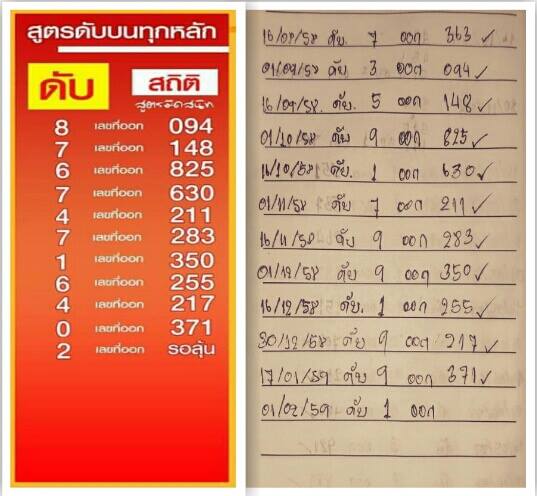 สูตรดับบนทุกหลัก
ดับ สถิติ
สูตรมิดสนิท
8 เลขที่ออก 094
7 เลขที่ออก 148
6 เลขที่ออก 825
7 เลขที่ออก 630
4 เลขที่ออก 211
7 เลขที่ออก 283
1 เลขที่ออก 350
6 เลขที่ออก 255
4 เลขที่ออก 217
0 เลขที่ออก 371
2 เลขที่ออก รอลุ้น
16/08/58 ดับ 7 ออก 363 ✓
01/09/58 ดับ 3 ออก 094 ✓
16/09/58. ดับ. 5 ออก 148 ✓
01/10/58 ดับ 9 ออก 825 ✓
16/10/58 ดับ. 1 ออก 630 ✓
01/11/58 ดับ 7 ออก 211 ✓
16/11/58 ดับ 9 ออก 283 ✓
01/12/58 ดับ 9 ออก 350 ✓
16/12/58 ดับ. 1 ออก 255 ✓
30/12/58 ดับ 9 ออก 217 ✓
17/01/59 ดับ 9 ออก 371 ✓
01/02/59 ดับ 1 ออก